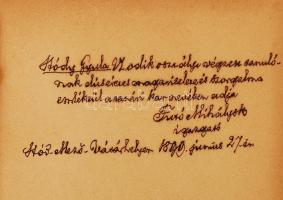 Hódy Gyula VI odik osztályt végzett tanuló-
nak dicséretes magaviselete és szorgalma
emlékeül a tanári kar nevében adja
Futó Mihály
igazgató
Hód-Mező-Vásárhelyen 1890. junius 27-én